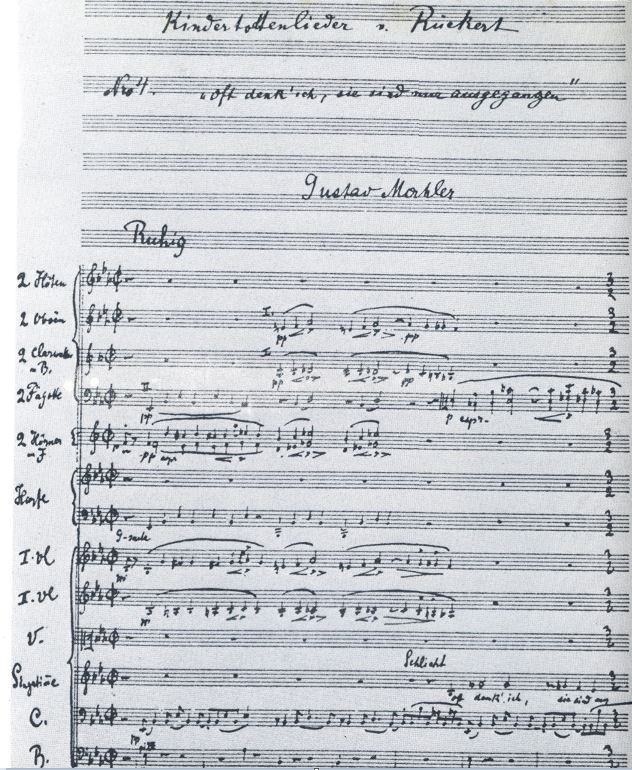 Kindertottenlieder v. Rückert
Nro 4. „Oft denk' ich, sie sind nur ausgegangen"
Gustav Mahler
Ruhig
2 Flöten
2 Oboen
I.
pp
pp
2 Clarinetten
in B.
I.
pp
pp
2 Fagotte
II
pp
p espr.
2 Hörner
in F
p
pp espr
Harfe
I. vl
g-saite
II. vl
V.
Schlicht
Singstimme
oft denk' ich, sie sind nur
C.
pp
B.
pizz